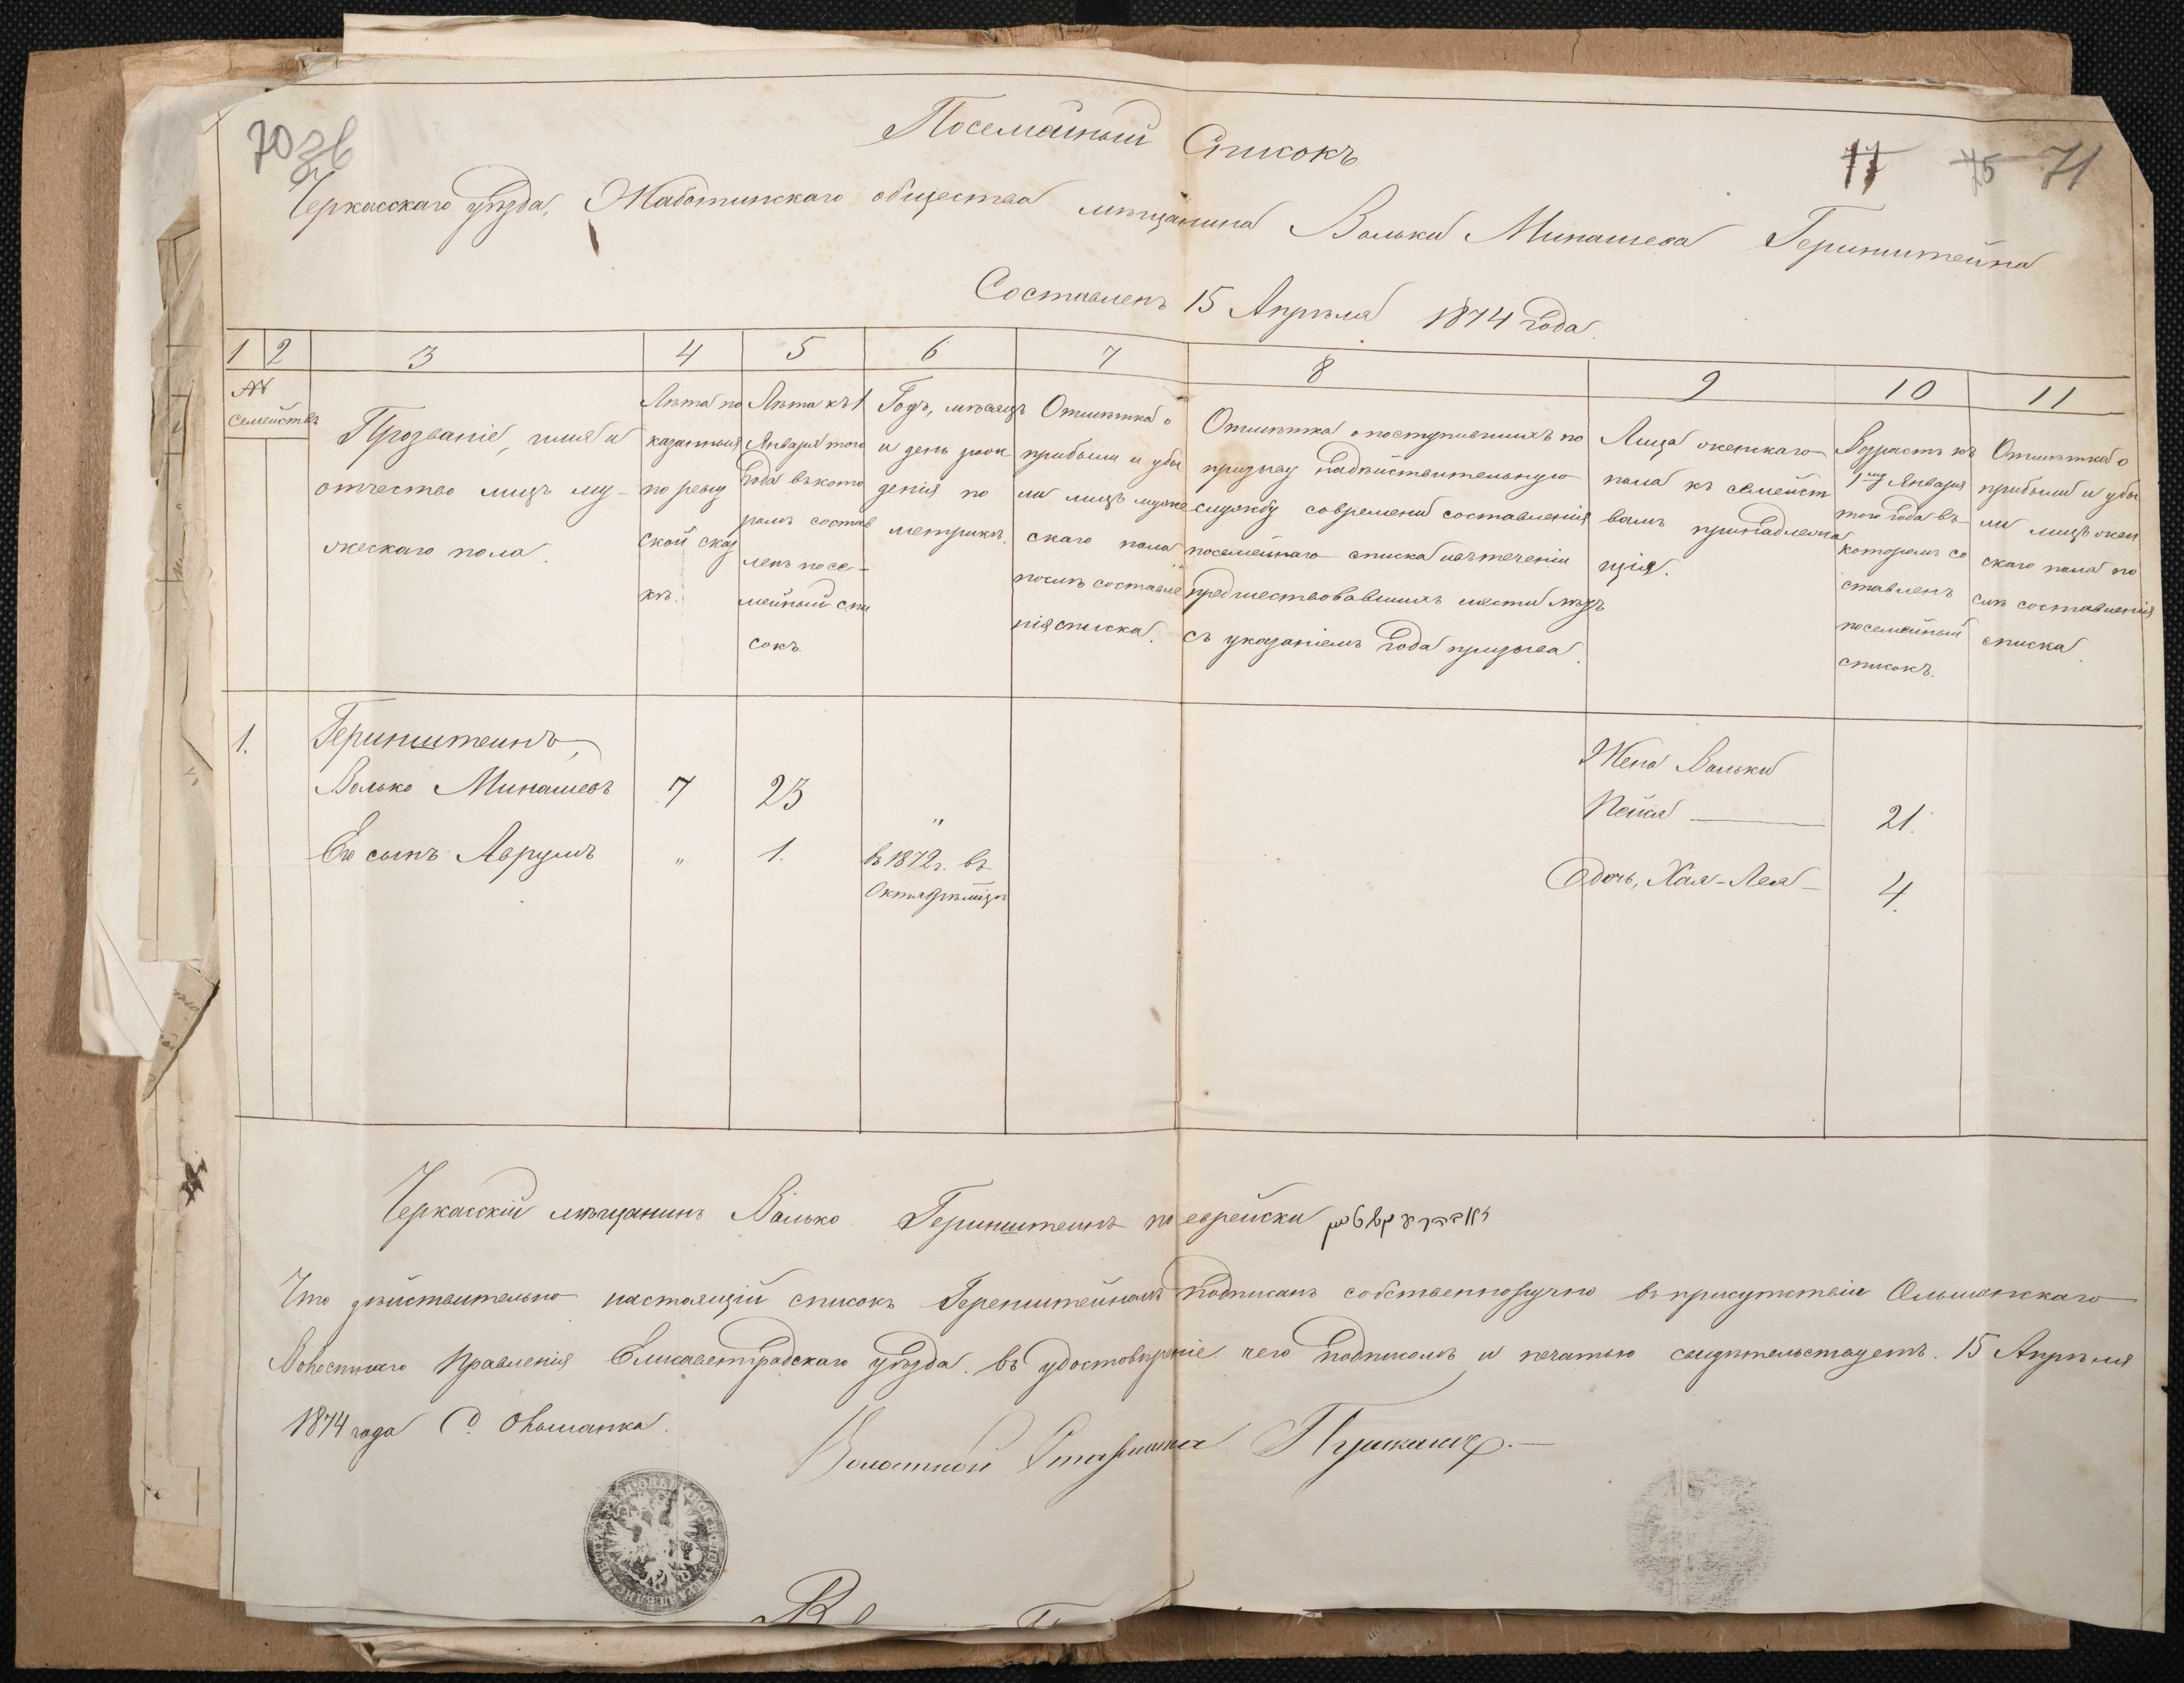 70зв
Посемейный Списокъ
77 75 71
Черкасскаго уѣзда, Жаботинскаго общества мѣщанина Вольки Минашева Геринштейна
Составленъ 15 Апрѣля 1874 Года.
1 2 3 4 5 6 7 8 9 10 11
№
семействъ
Прозваніе, имя и
отчество лицъ му-
жескаго пола.
Лѣта по
казанныя
по ревиз
ской сказ
кѣ.
Лѣта къ 1
Января того
Года въ кото
ромъ состав
ленъ посе-
мейный спи
сокъ.
Годъ, мѣсяцъ
и день рож
денія по
метрикѣ.
Отмѣтка о
прибыли и убы
ли лицъ муже
скаго пола
послѣ составле
нія списка.
Отмѣтка о поступившихъ по
призыву на дѣйствительную
службу современи составленія
посемейнаго списка и въ теченіи
предшествовавшихъ шести лѣтъ
съ указаніемъ Года призыва.
Лица женскаго
пола къ семейст
вамъ принадлежа
щія.
Возрастъ къ
1му Января
того Года въ
которомъ со
ставленъ
посемейный
списокъ.
Отмѣтка о
прибыли и убы
ли лицъ жен
скаго пола по
слѣ составленія
списка.
1. Геринштеинъ,
Волько Минашевъ 7 23 "
Его сынъ Аврумъ " 1. въ 1872 г. въ
Октябрѣ мѣцѣ
Жена Вольки
Пейся 21.
Дочь, Хая-Лея- 4.
Черкасскій мѣщанинъ Волько Геринштеинъ по еврейски
Что дѣйствительно настоящій списокъ Геренштейномъ подписанъ собственноручно въ присутствіи Ольшанскаго
Волостнаго Правленія Елисаветградскаго уѣзда. въ удостовѣреніе чего подписомъ и печатью свидѣтельствуетъ. 15 Апрѣля
1874 года С. Ольшанка.
Волостной Старшина